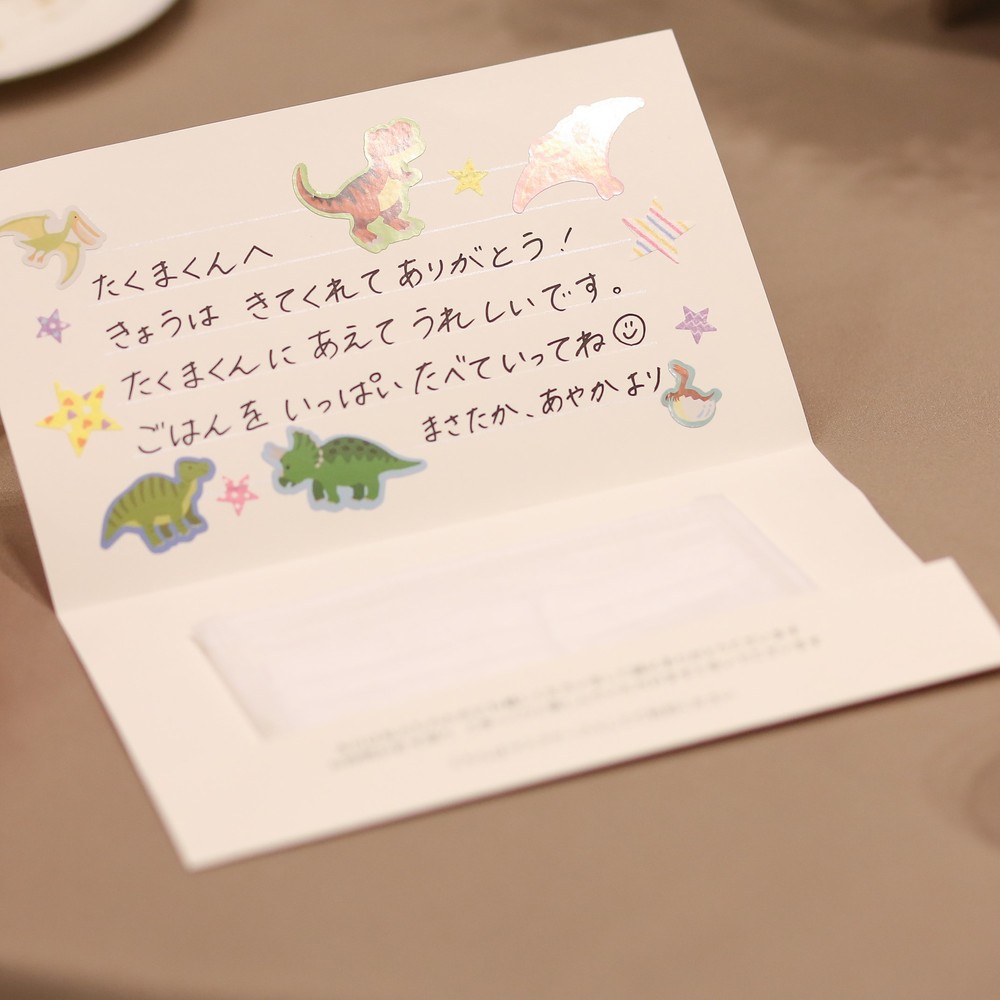 たくまくんへ
きょうは きてくれて ありがとう!
たくまくんに あえて うれしいです。
ごはんを いっぱい たべていってね☺
まさたか、あやか より